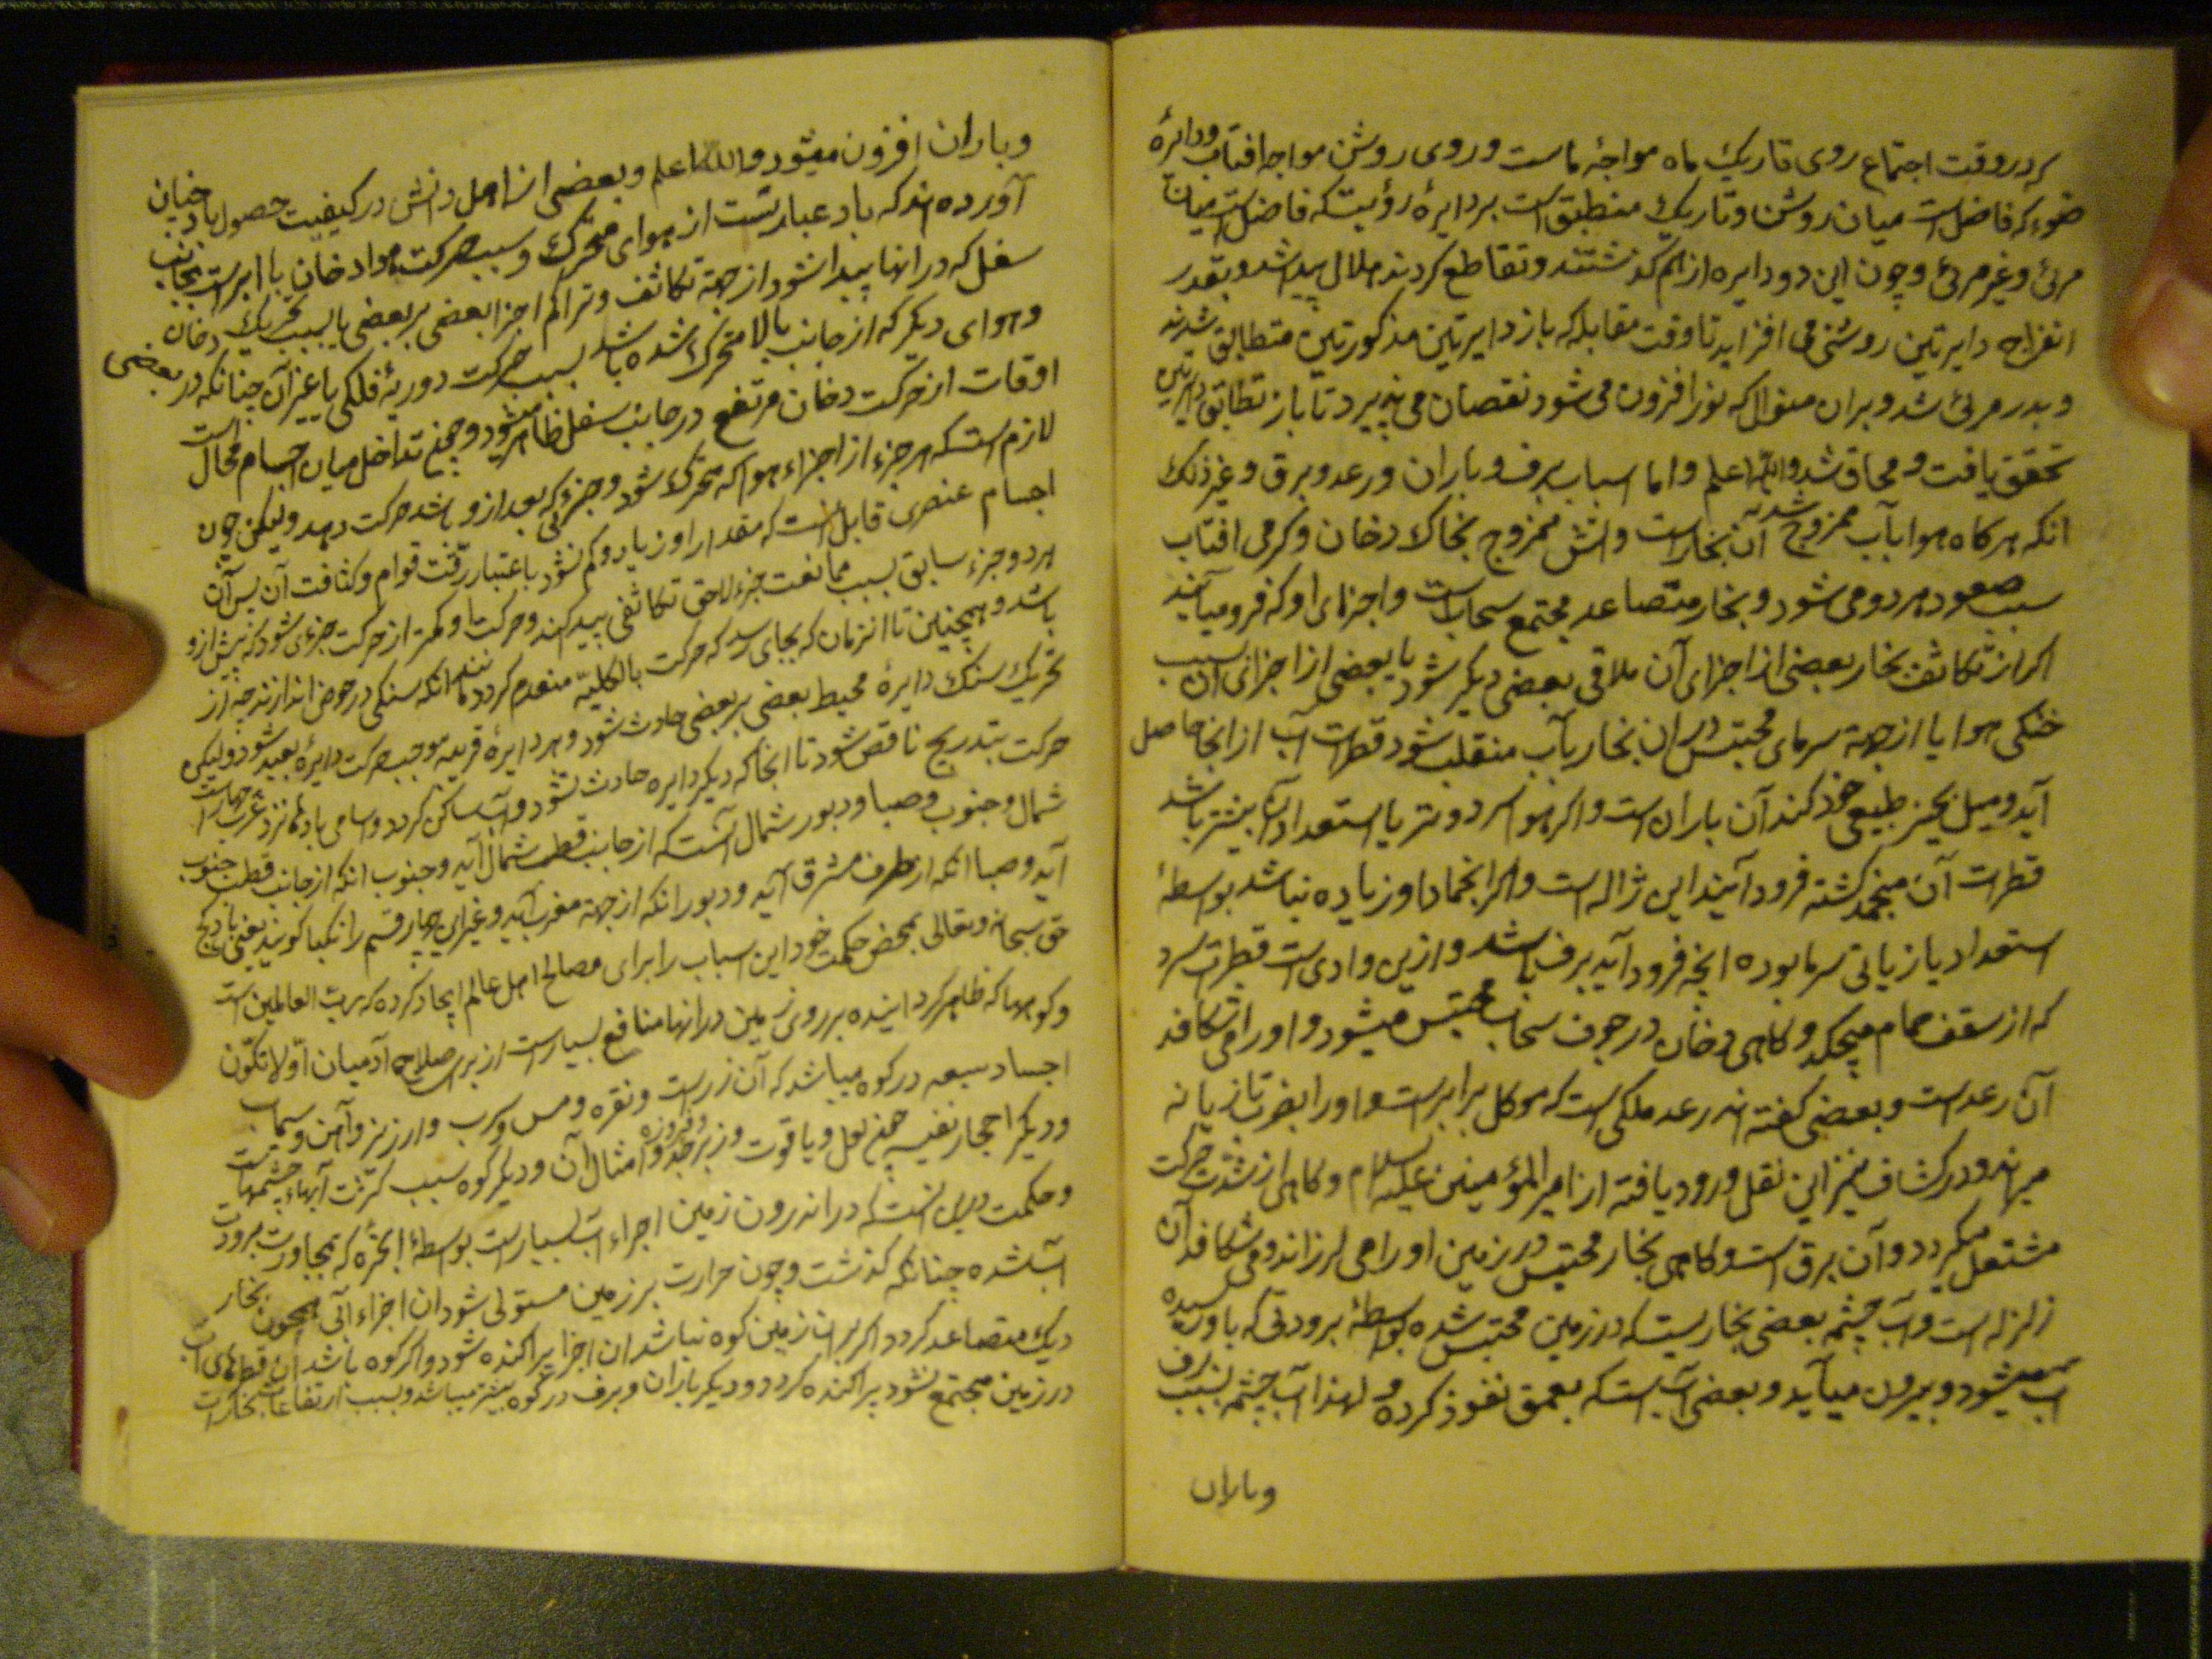 که در وقت اجتماع روی تاریک ماه مواجهٔ ماست و روی روشن مواجه افتاب و دایرهٔ
ضوء که فاضل است میان روشن و تاریک منطبق است بر دایرهٔ رؤیت که فاضل است میان
مرئی و غیر مرئی و چون این دو دایره از هم کذشتند و تقاطع کردند هلال پیدا شد و بقدر
انفراج دایرتین روشنی می افزاید تا وقت مقابله که باز دایرتین مذکورتین متطابق شدند
و بدر مرئی شد و بران منوال که نور افزون می شود نقصان می پذیرد تا باز تطابق دایرتین
تحقق یافت و محاق شد والله اعلم و اما اسباب برف و باران و رعد و برق و غیر ذلک
انکه هرکاه هوا بآب ممزوج شد آن بخار است و اتش ممزوج بخاک دخان و کرمی افتاب
سبب صعود هر دو می شود و بخار متصاعد مجتمع سحاب است و اجزای او که فرو میآیند
اکر از تکاثف بخار بعضی از اجزای آن ملاقی بعضی دیکر شود یا بعضی از اجزای آن بسبب
خنکی هوا یا از جهة سرمای محتبس در ان بخار بآب منقلب شود قطرات آب از انجا حاصل
آید و میل بحیز طبیعی خود کند آن باران است و اکر هوا سرد و تر یا استعداد آن بیشتر باشد
قطرات آن منجمد کشته فرود آیند این ژاله است و اکر انجماد او زیاده نباشد بواسطهٔ
استعداد یا زیادتی سرما بوده انچه فرود آید برف باشد و ازین وادی است قطرات سرد
که از سقف حمام میچکد و کاهی دخان در جوف سحاب محتبس میشود و او را می شکافد
آن رعد است و بعضی کفته اند رعد ملکی است که موکل بر ابر است و او را بضرب تازیانه
میراند و در کشاف نیز این نقل ورود یافته از امیر المؤمنین علیه السلام و کاهی از شدت حرکت
مشتعل میکردد و آن برق است و کاهی بخار محتبس در زمین او را می لرزاند و می شکافد آن
زلزله است و آب چشمه بعضی بخاریست که در زمین محتبس شده بواسطهٔ برودتی که باو رسیده
آب میشود و بیرون میآید و بعضی آب است که بعمق نفوذ کرده و لهذا آب چشمه بسبب برف
و باران
و باران افزون میشود والله اعلم و بعضی از اهل دانش در کیفیت حصول باد چنان
آورده اند که باد عبارتست از هوای متحرک و سبب حرکت هوا دخان یا ابر است بجانب
سفل که در انها پیدا شود از جهة تکاثف و تراکم اجزا بعضی بر بعضی یا بسبب تحریک دخان
و هوای دیکر که از جانب بالا متحرک شده باشد بسبب حرکت دوریهٔ فلکی یا غیر آن چنانکه در بعضی
اوقات از حرکت دخان مرتفع در جانب سفل ظاهر میشود و چون تداخل میان اجسام محال است
لازم است که هر جزء از اجزاء هوا که متحرک شود و جزئی که بعد از و باشد حرکت دهد ولیکن چون
اجسام عنصری قابل است که مقدار او زیاد و کم شود باعتبار رقت قوام و کثافت آن پس آن
هر دو جزء سابق بسبب ممانعت جزء لاحق تکاثفی پیدا کند و حرکت او کمتر از حرکت جزئی شود که پیش ازو
باشد و همچنین تا انزمان که بجای رسد که حرکت بالکلیه منعدم کردد مانند انکه سنکی در حوض اندازند چه از
تحریک سنک دایرهٔ محیط بعضی بر بعضی حادث شود و هر دایرهٔ قریبه موجب حرکت دایرهٔ بعید شود ولیکن
حرکت بتدریج ناقص شود تا انجا که دیکر دایره حادث نشود و آب ساکن کردد و اسامی بادها نزد عرب چهار است
شمال و جنوب و صبا و دبور شمال آنست که از جانب قطب شمال آید و جنوب انکه از جانب قطب جنوب
آید و صبا انکه از طرف مشرق آید و دبور انکه از جهة مغرب آید و غیر این چهار قسم را نکبا کویند یعنی باد کج
حق سبحانه و تعالی بمحض حکمت خود این اسباب را برای مصالح اهل عالم ایجاد کرده که رب العالمین است
و کوهها که ظاهر کردانیده بر روی زمین در انها منافع بسیار است از برای صلاح آدمیان اولا تکون
اجساد سبعه در کوه میباشد که آن زر است و نقره و مس و سرب و ارزیز و آهن و سیماب
و دیکر احجار نفیسه چون لعل و یاقوت و زبرجد و فیروزه و امثال آن و دیکر کوه سبب کثرت آبها و چشمهاست
و حکمت درین انست که در اندرون زمین اجزاء آب بسیار است بواسطهٔ ابخره که بمجاورت برودت
آب شده چنانکه کذشت و چون حرارت بر زمین مستولی شود ان اجزاء آبی همچون بخار
دیک متصاعد کردد اکر بران زمین کوه نباشد ان اجزا پراکنده شود و اکر کوه باشد ان قطرهای آب
در زمین مجتمع نشود پراکنده کردد و دیکر باران و برف در کوه بیشتر میباشد و بسبب ارتفاعات بخارات